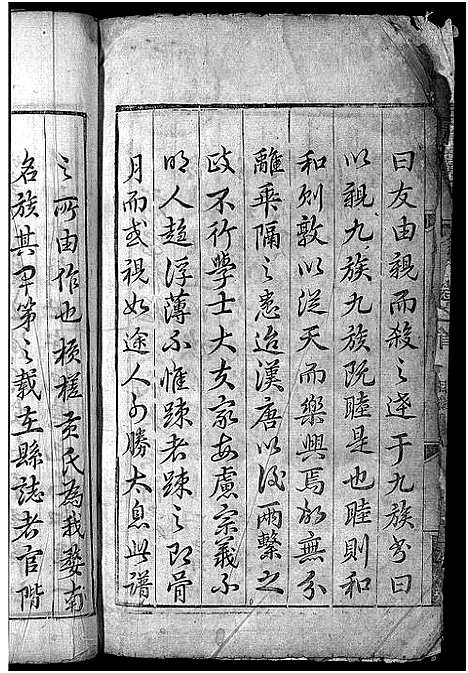 曰友由親而殺之逹于九族书曰
以親九族九族既睦是也睦則和
和則敦以從天而樂興焉故無分
離乖隔之患迨漢唐以後兩繫之
政不行學士大夫家安慮宗義不
明人趋浮薄不惟踈者踈之即骨
月而或視如途人可勝太息此譜
之所由作也槟榔黄氏為我婺南
名族其甲第之载在縣誌者官階